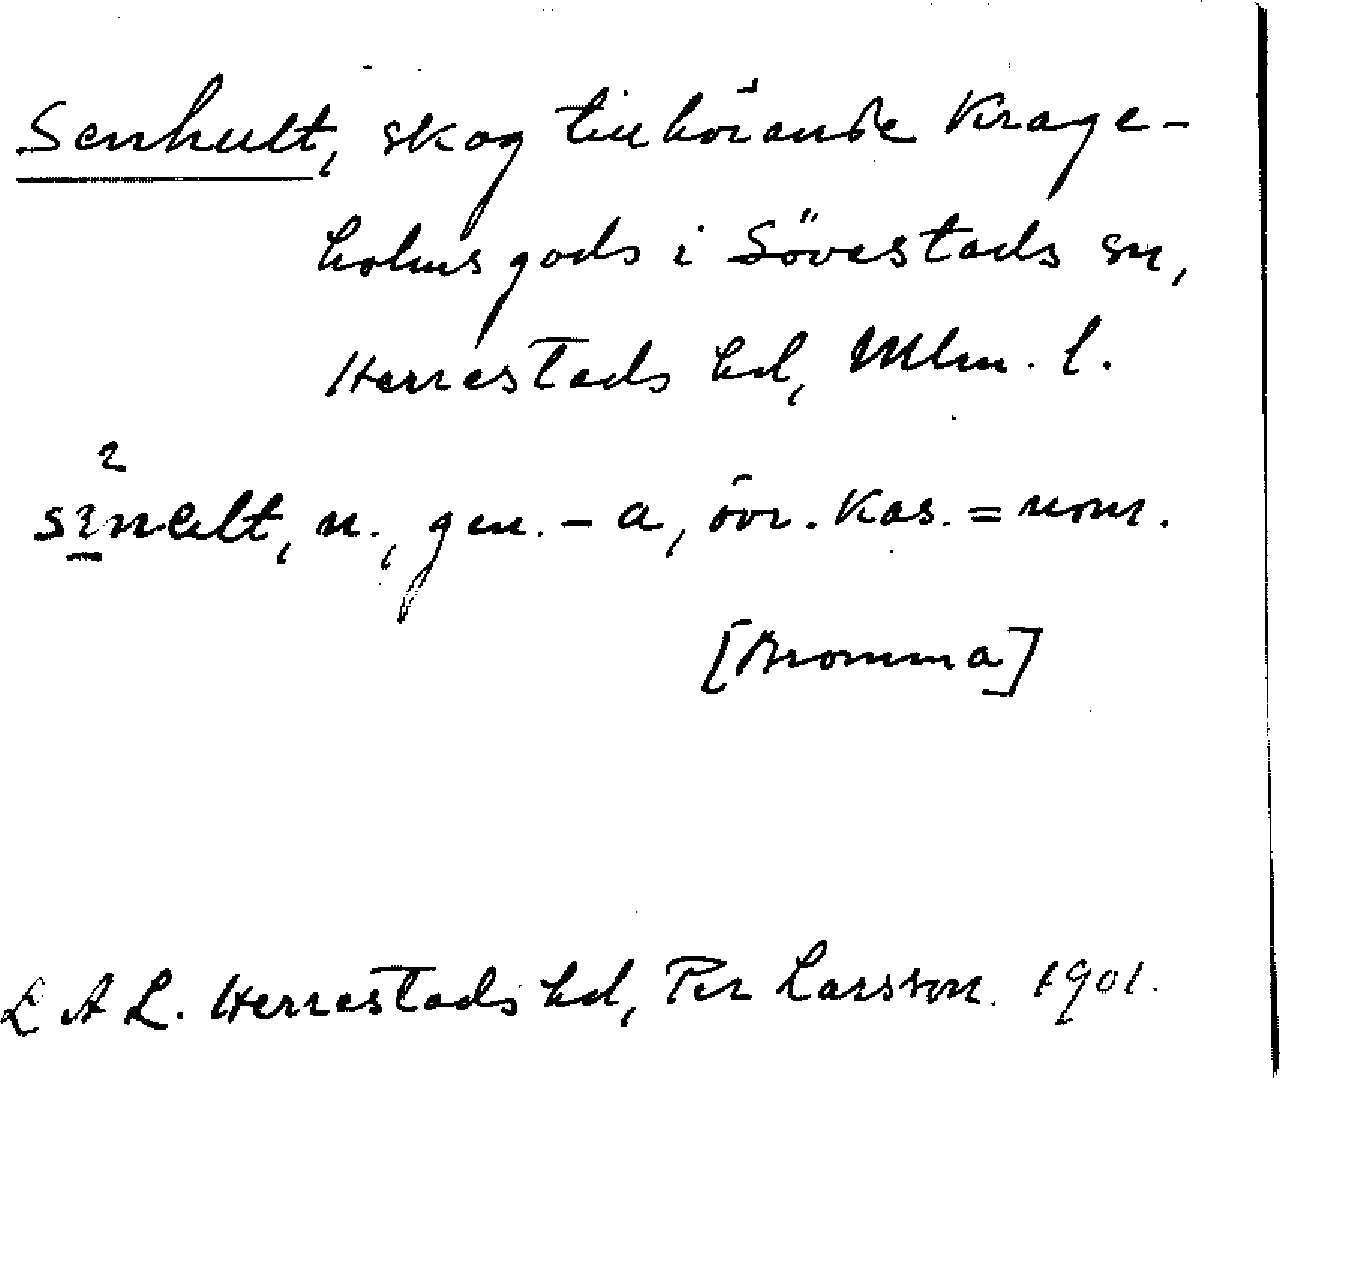 Senhult, skog tillhörande Krage-
holms gods i Sövestads sn,
Herrestads hd, Mlm. l.
n., gen. - a, övr. kas. = nom.
[Bromma]
L A L. Herrestads hd, Per Larsson. 1901.